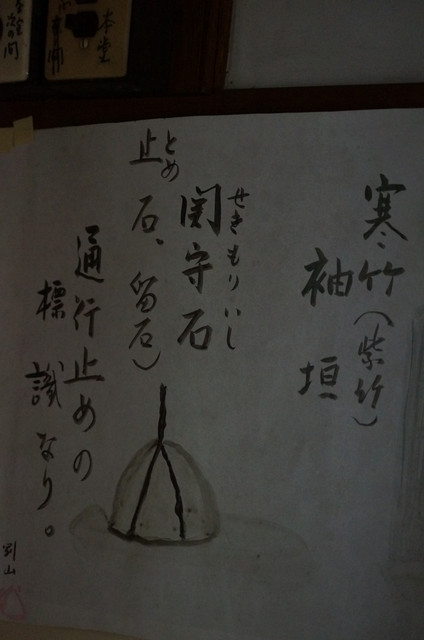 寒竹(紫竹)
袖垣
せきもりいし
関守石
とめ
止石、留石)
通行止めの
標識なり。
本堂